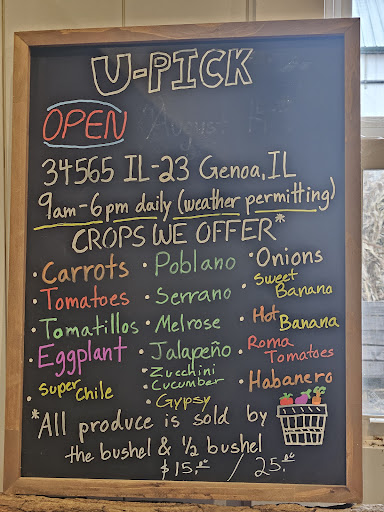 U-PICK
OPEN
34565 IL-23 Genoa, IL
9am-6pm daily (weather permitting)
CROPS WE OFFER*
• Carrots
• Tomatoes
• Tomatillos
• Eggplant
• Super Chile
• Poblano
• Serrano
• Melrose
• Jalapeño
• Zucchini
Cucumber
• Gypsy
• Onions
• Sweet
Banana
• Hot
Banana
• Roma
Tomatoes
• Habanero
*All produce is sold by
the bushel & ½ bushel
$15.00 / 25.00